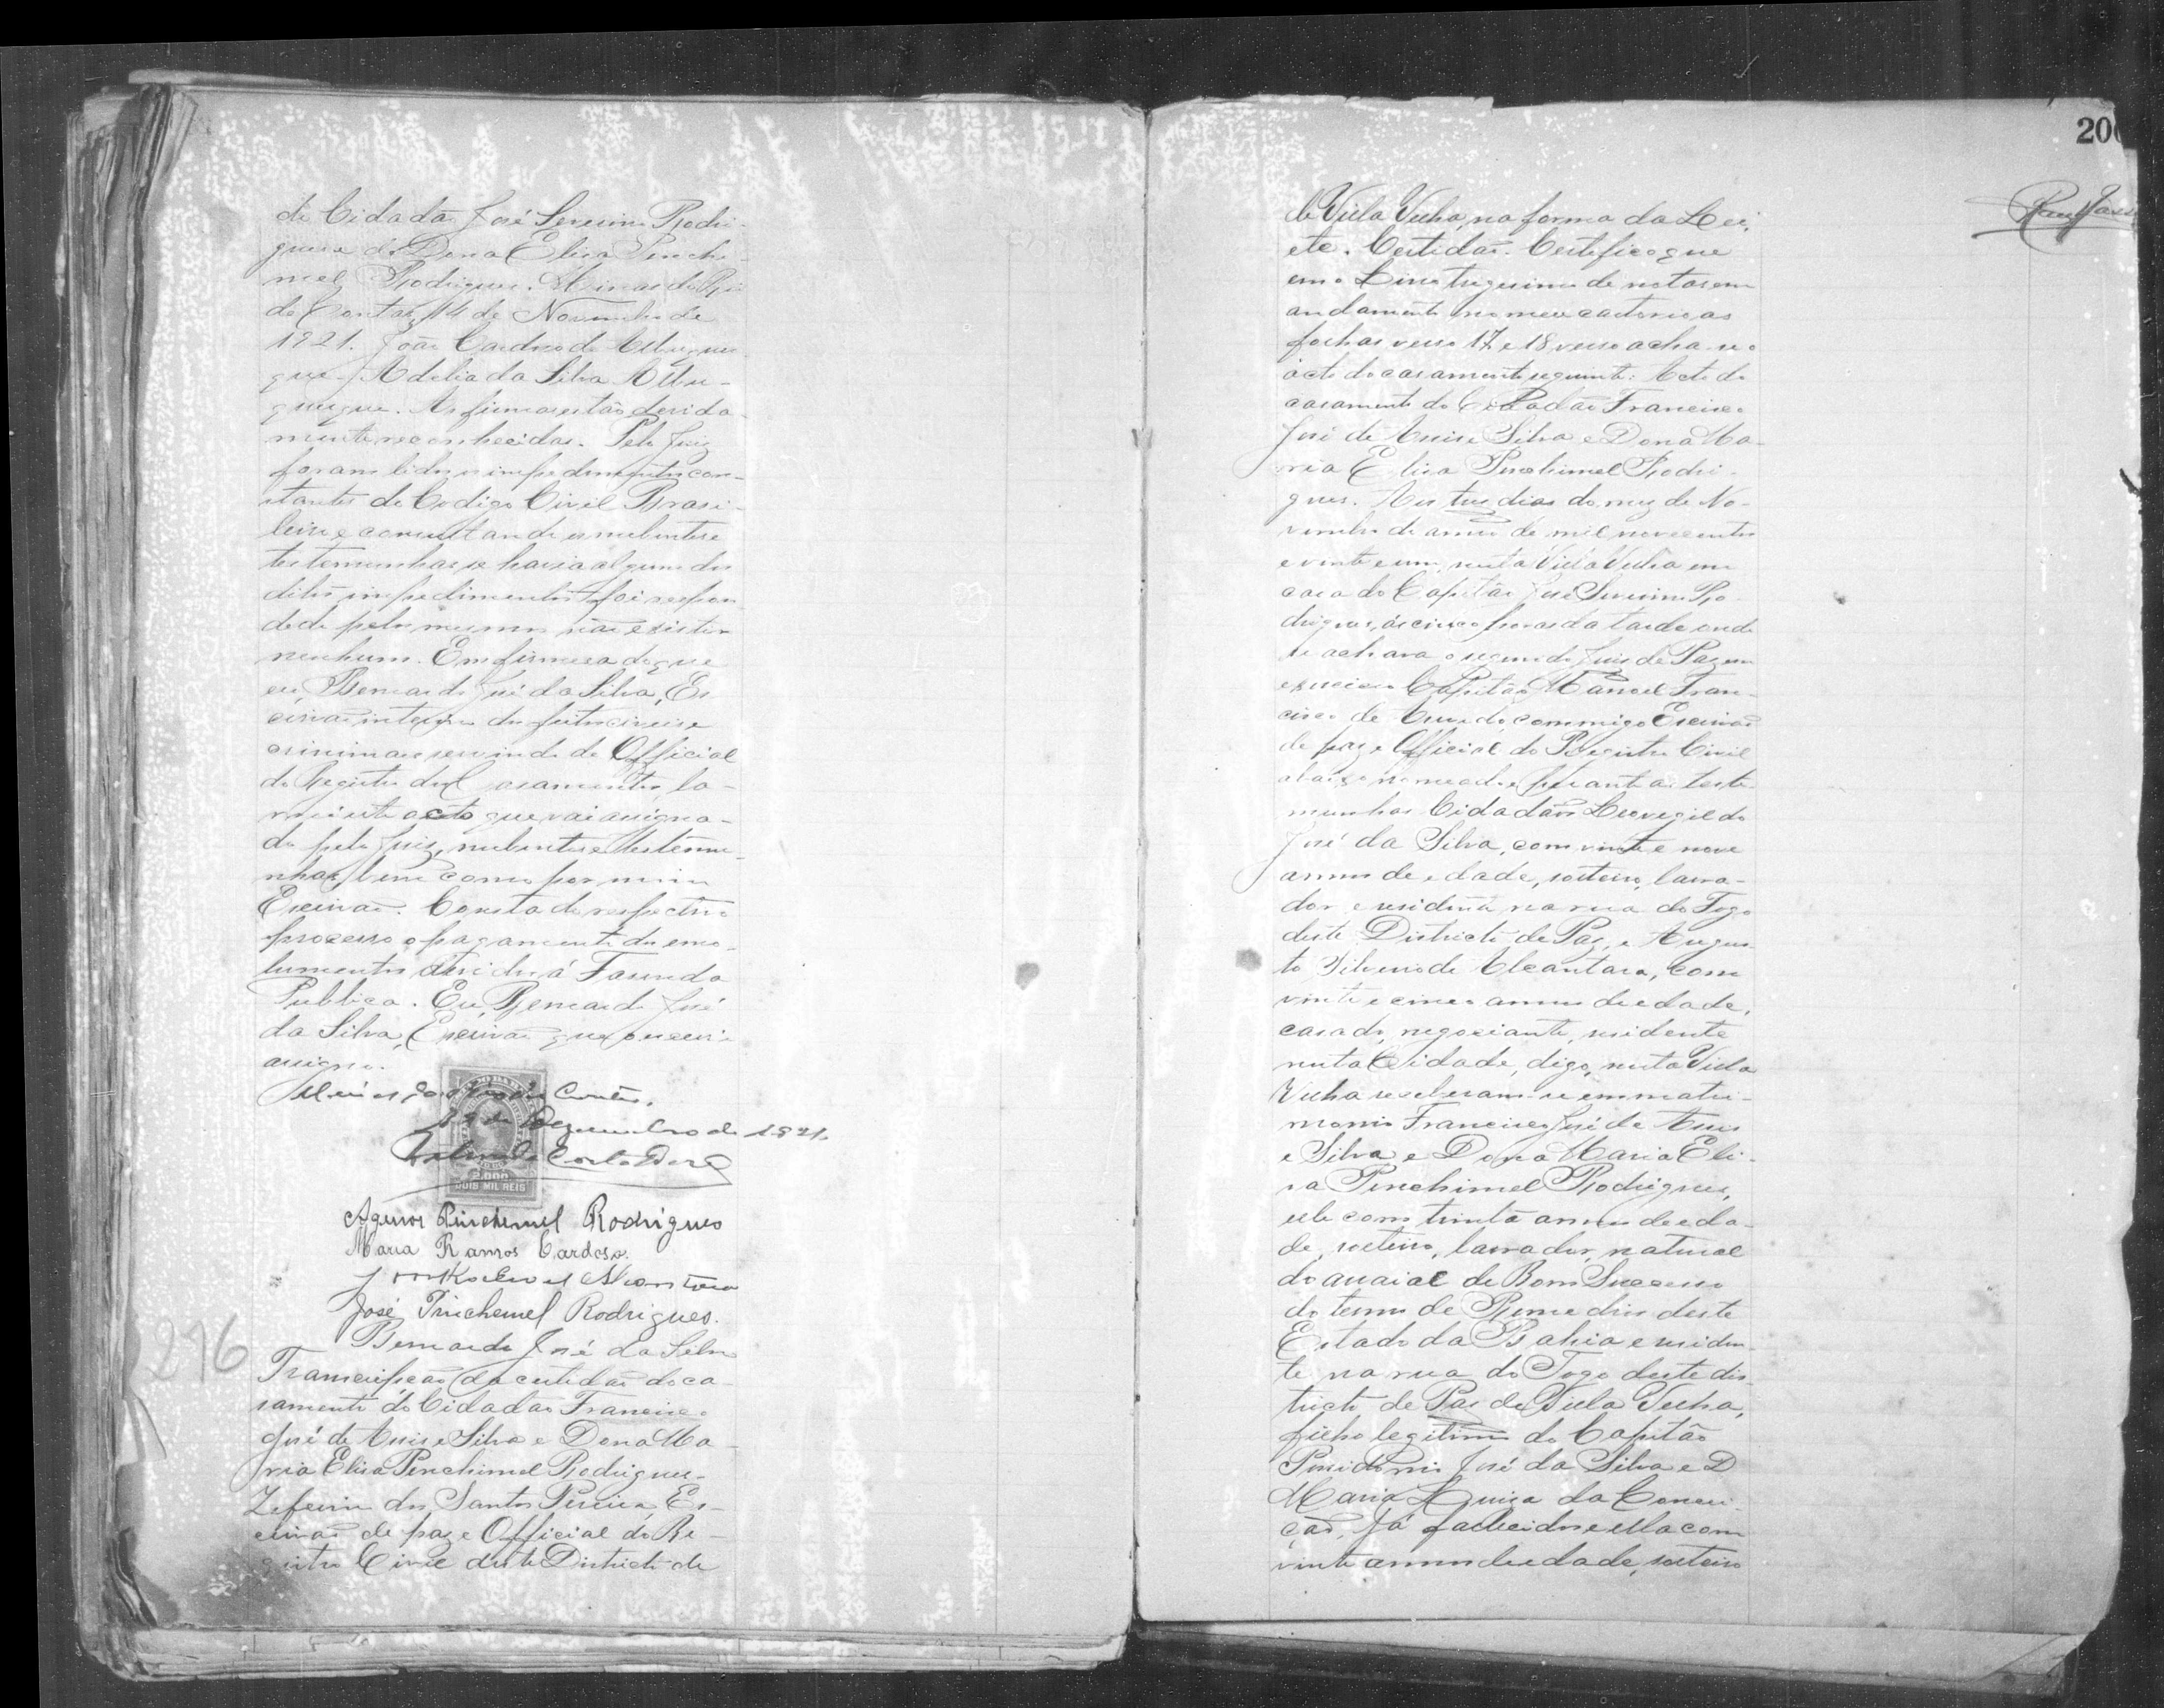 do Cidadão José Severino Rodri-
gues e de Dona Elisa Pinche-
mel Rodrigues. Minas do Rio
de Contas, 14 de Novembro de
1921. João Cardoso de Albuquer-
que. Adelia da Silva Albu-
querque. As firmas estão devida-
mente reconhecidas. Pelo Juiz
foram lidos os impedimentos con-
stantes do Codigo Civil Brasi-
leiro e consultando os nubentes e
testemunhas se havia algum dos
ditos impedimentos foi respon-
dido pelos mesmos não existir
nenhum. Em firmesa do que
eu, Bernardo José da Silva, Es-
crivão interino dos feitos civeis e
criminaes servindo de Official
do Registro dos Casamentos, la-
vrei este acto que vai assigna-
do pelo Juiz, nubentes e testemu-
nhas, bem como por mim
Escrivão. Consta do respectivo
processo o pagamento dos emo-
lumentos devidos á Fasenda
Publica. Eu, Bernardo José
da Silva, Escrivão que o escrevi e
assigno.
Minas do Rio de Contas,
de Dezembro de 1921.
2.000
DOIS MIL REIS
Agenor Pinchemel Rodrigues
Maria Ramos Cardoso.
José Pinchemel Rodrigues.
Bernardo José da Silva
296
Transcripção da certidão do ca-
samento do Cidadão Francisco
José de Assis e Silva e Dona Ma-
ria Elisa Pinchimel Rodrigues.
Zeferino dos Santos Pereira, Es-
crivão de paz e Official do Re-
gistro Civil deste Districto de
206
de Villa Velha, na forma da Lei,
etc. Certidão. Certifico que
em o Livro trigesimo de notas em
andamento no meu cartorio as
folhas verso 17 e 18 verso acha-se o
acto do casamento seguinte: Acto do
casamento do Cidadão Francisco
José de Assis e Silva e Dona Ma-
ria Elisa Pinchimel Rodri-
gues. Aos tres dias do mez de No-
vembro do anno de mil novecentos
e vinte e um, nesta Villa Velha em
casa do Capitão José Severino Ro-
drigues, ás cinco horas da tarde, onde
se achava o segundo Juiz de Paz em
exercicio Capitão Manoel Fran-
cisco de commigo Escrivão
de paz e Official do Registro Civil
abaixo nomeado e perante as teste-
munhas Cidadãos Leovegildo
José da Silva, com vinte e nove
annos de edade, solteiro, lavra-
dor e residente na rua do Fogo
deste Districto de Paz, e Augus-
to Silverio de Alcantara, com
vinte e cinco annos de edade,
casado, negociante, residente
nesta Cidade, digo, nesta Villa
Velha receberam-se em matri-
monio Francisco José de Assis
e Silva e Dona Maria Eli-
sa Pinchimel Rodrigues,
elle com trinta annos de eda-
de, solteiro, lavrador, natural
do arraial de Bom Successo
do termo de Remedios deste
Estado da Bahia e residen-
te na rua do Fogo deste dis-
tricto de Paz de Villa Velha,
filho legitimo do Capitão
Possidonio José da Silva e D.
Maria Luiza da Concei-
ção, já fallecidos e ella com
vinte annos de edade, solteira